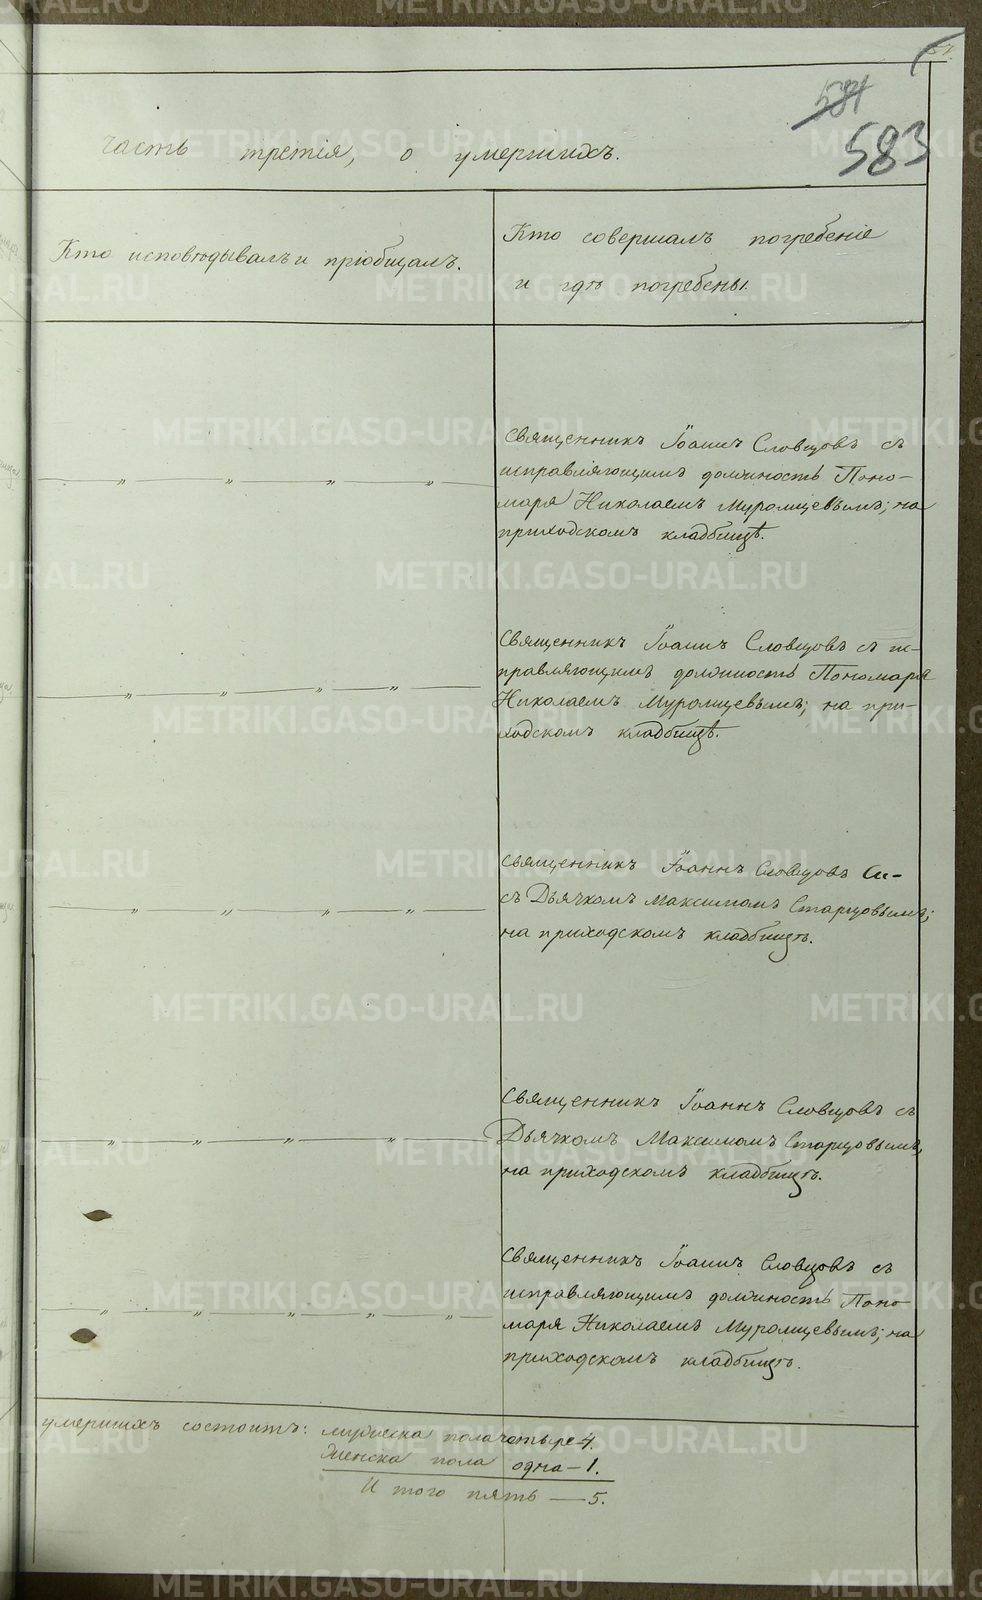 584
583
часть третія, о умершихъ.
Кто исповѣдывалъ и пріобщалъ.
Кто совершалъ погребеніе
и гдѣ погребены.
Священникъ Іоаннъ Словцовъ съ
исправляющимъ должность Поно-
маря Николаемъ Муромцевымъ; на
приходскомъ кладбищѣ.
Священникъ Іоаннъ Словцовъ съ ис-
правляющимъ должность Пономаря
Николаемъ Муромцевымъ; на при-
ходскомъ кладбищѣ.
Священникъ Іоаннъ Словцовъ
съ Дьячкомъ Максимомъ Старцовымъ;
на приходскомъ кладбищѣ.
Священникъ Іоаннъ Словцовъ съ
Дьячкомъ Максимомъ Старцовымъ,
на приходскомъ кладбищѣ.
Священникъ Іоаннъ Словцовъ съ
исправляющимъ должность Поно-
маря Николаемъ Муромцевымъ; на
приходскомъ кладбищѣ.
умершихъ состоитъ: мужеска пола четыре 4.
женска пола одна – 1.
И того пять — 5.
METRIKI.GASO-URAL.RU